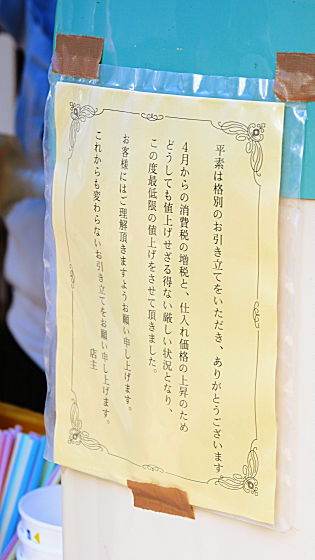 平素は格別のお引き立てをいただき、ありがとうございます
4月からの消費税の増税と、仕入れ価格の上昇のため
どうしても値上げせざる得ない厳しい状況となり、
この度最低限の値上げをさせて頂きました。
お客様にはご理解頂きますようお願い申し上げます。
これからも変わらないお引き立てをお願い申し上げます。
店主